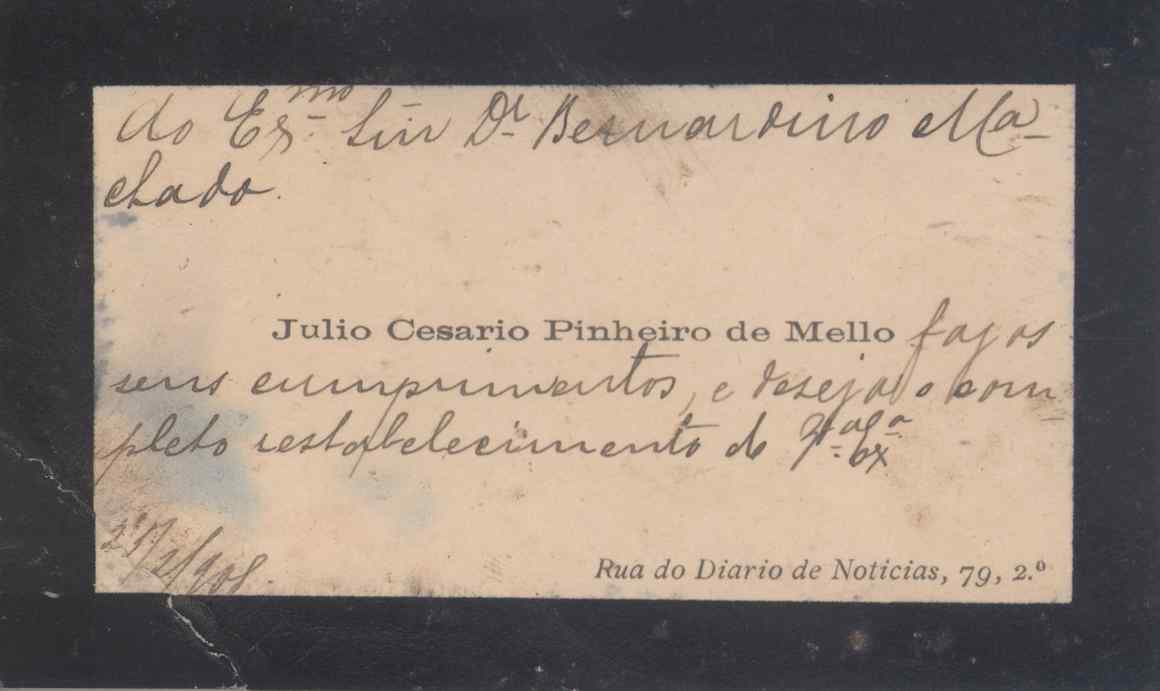 Ao Ex.mo Snr Dr. Bernardino Ma-
chado.
Julio Cesario Pinheiro de Mello faz os
seus cumprimentos, e deseja o com
pleto restabelecimento de
Rua do Diario de Noticias, 79, 2.º